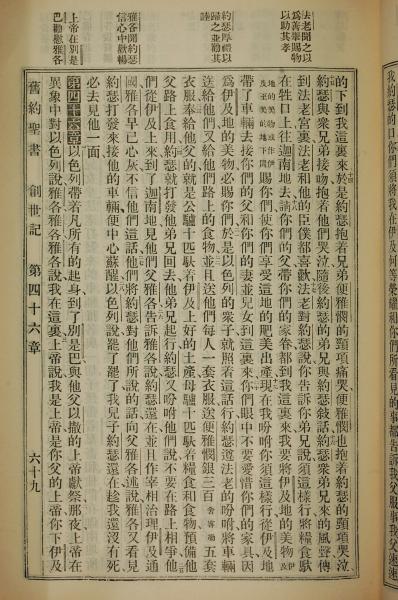 我約瑟的口你們須將我在伊及何等榮耀和你們所看見的事都告訴我父服事我父速速
法老聞之以
為善畢賜物
以助其孝
約瑟厚禮以
歸之並勸其
睦
雅各聞約瑟
信心中歡暢
上帝在別是
巴勸慰雅各
的下到我這裏來於是約瑟抱着兄弟便雅憫的頸項痛哭便雅憫也抱着約瑟的頸項哭泣
約瑟與衆兄弟接吻抱着他們哭泣隨後約瑟的弟兄與約瑟敍話約瑟衆弟兄來的風聲傳
到法老宮裏法老和他的臣僕都喜歡法老對約瑟說你告訴你弟兄說須這樣行將糧食馱
在牲口上往迦南地去請你們的父帶你們的家眷都到我這裏來我要將伊及地的美物伊及
地的美物或作伊及至美的地下同賜給你們使你們享受這地的肥美出產現在我吩咐你須這樣行從伊及地
帶了車輛去接你們的父和你們的妻並兒女到這裏來你們眼中不要愛惜你們的家具因
爲伊及地的美物必賜你們於是以色列的衆子就照着這話行約瑟遵法老的吩咐將車輛
送給他們又給他們路上的食物並且送他們每人一套衣服送便雅憫銀三百舍客勒五套
衣服奉給他父的就是公驢十匹馱着伊及上好的土產母驢十匹馱着糧食和食物預備他
父路上食用約瑟就打發他弟兄回去他弟兄起行約瑟又吩咐他們說不要在路上相爭他
們從伊及上來到了迦南地見他們父雅各告訴雅各說約瑟還在並且作宰相治理伊及通
國雅各早已心灰不信他們這話他們將約瑟對他們所說的話向雅各述說雅各又看見
約瑟打發來接他的車輛便中心蘇醒以色列說罷了罷了我兒子約瑟還在趁我還沒有死
必去見他一面
第四十六章以色列帶着凡所有的起身到了別是巴與他父以撒的上帝獻祭那夜上帝在
異象中對以色列說雅各雅各雅各說我在這裏上帝說我是上帝是你父的上帝你下伊及
舊約聖書 創世記 第四十六章 六十九